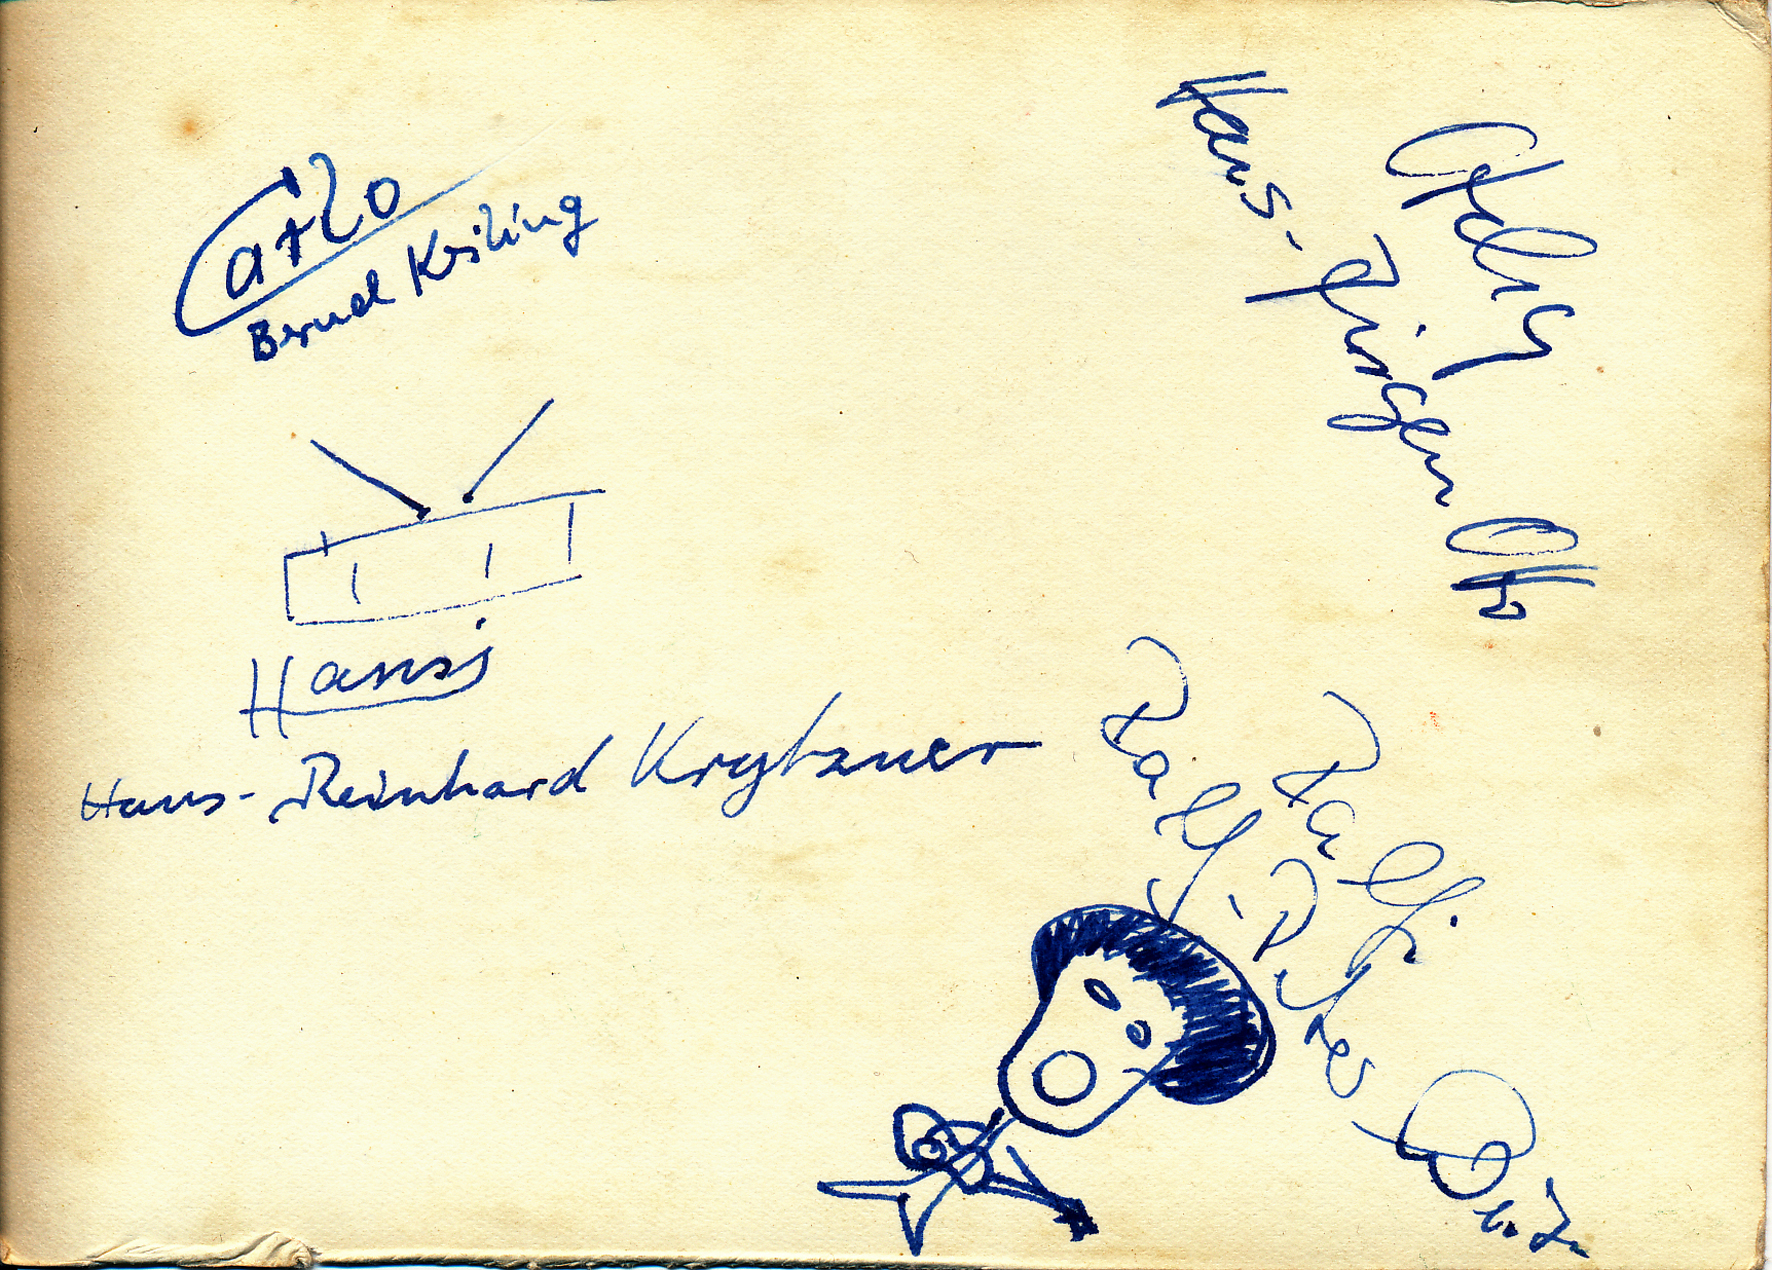 Carlo
Bernd Keiling
Hansi
Hans-Reinhard Krytzner
Hans-Jürgen Otto
Ralfi
Ralf-Peter